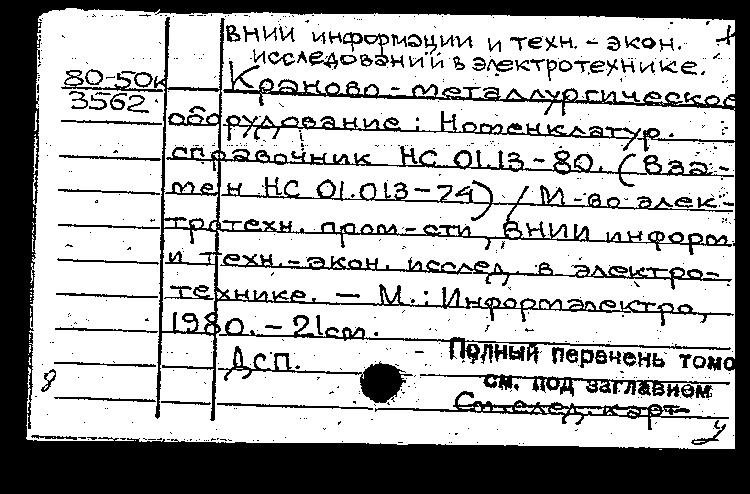 ВНИИ информации и техн. - экон.
исследований в электротехнике.
80-50к
3562
Краново-металлургическое
оборудование: Номенклатур.
справочник НС 01.13-80. (Вза-
мен НС 01.013-74) / М-во элек-
тротехн. пром-сти, ВНИИ информ.
и техн.-экон. исслед. в электро-
технике. — М.: Информэлектро,
1980. - 21см.
ДСП.
Полный перечень томо
см. под заглавием
См. след. карт
8